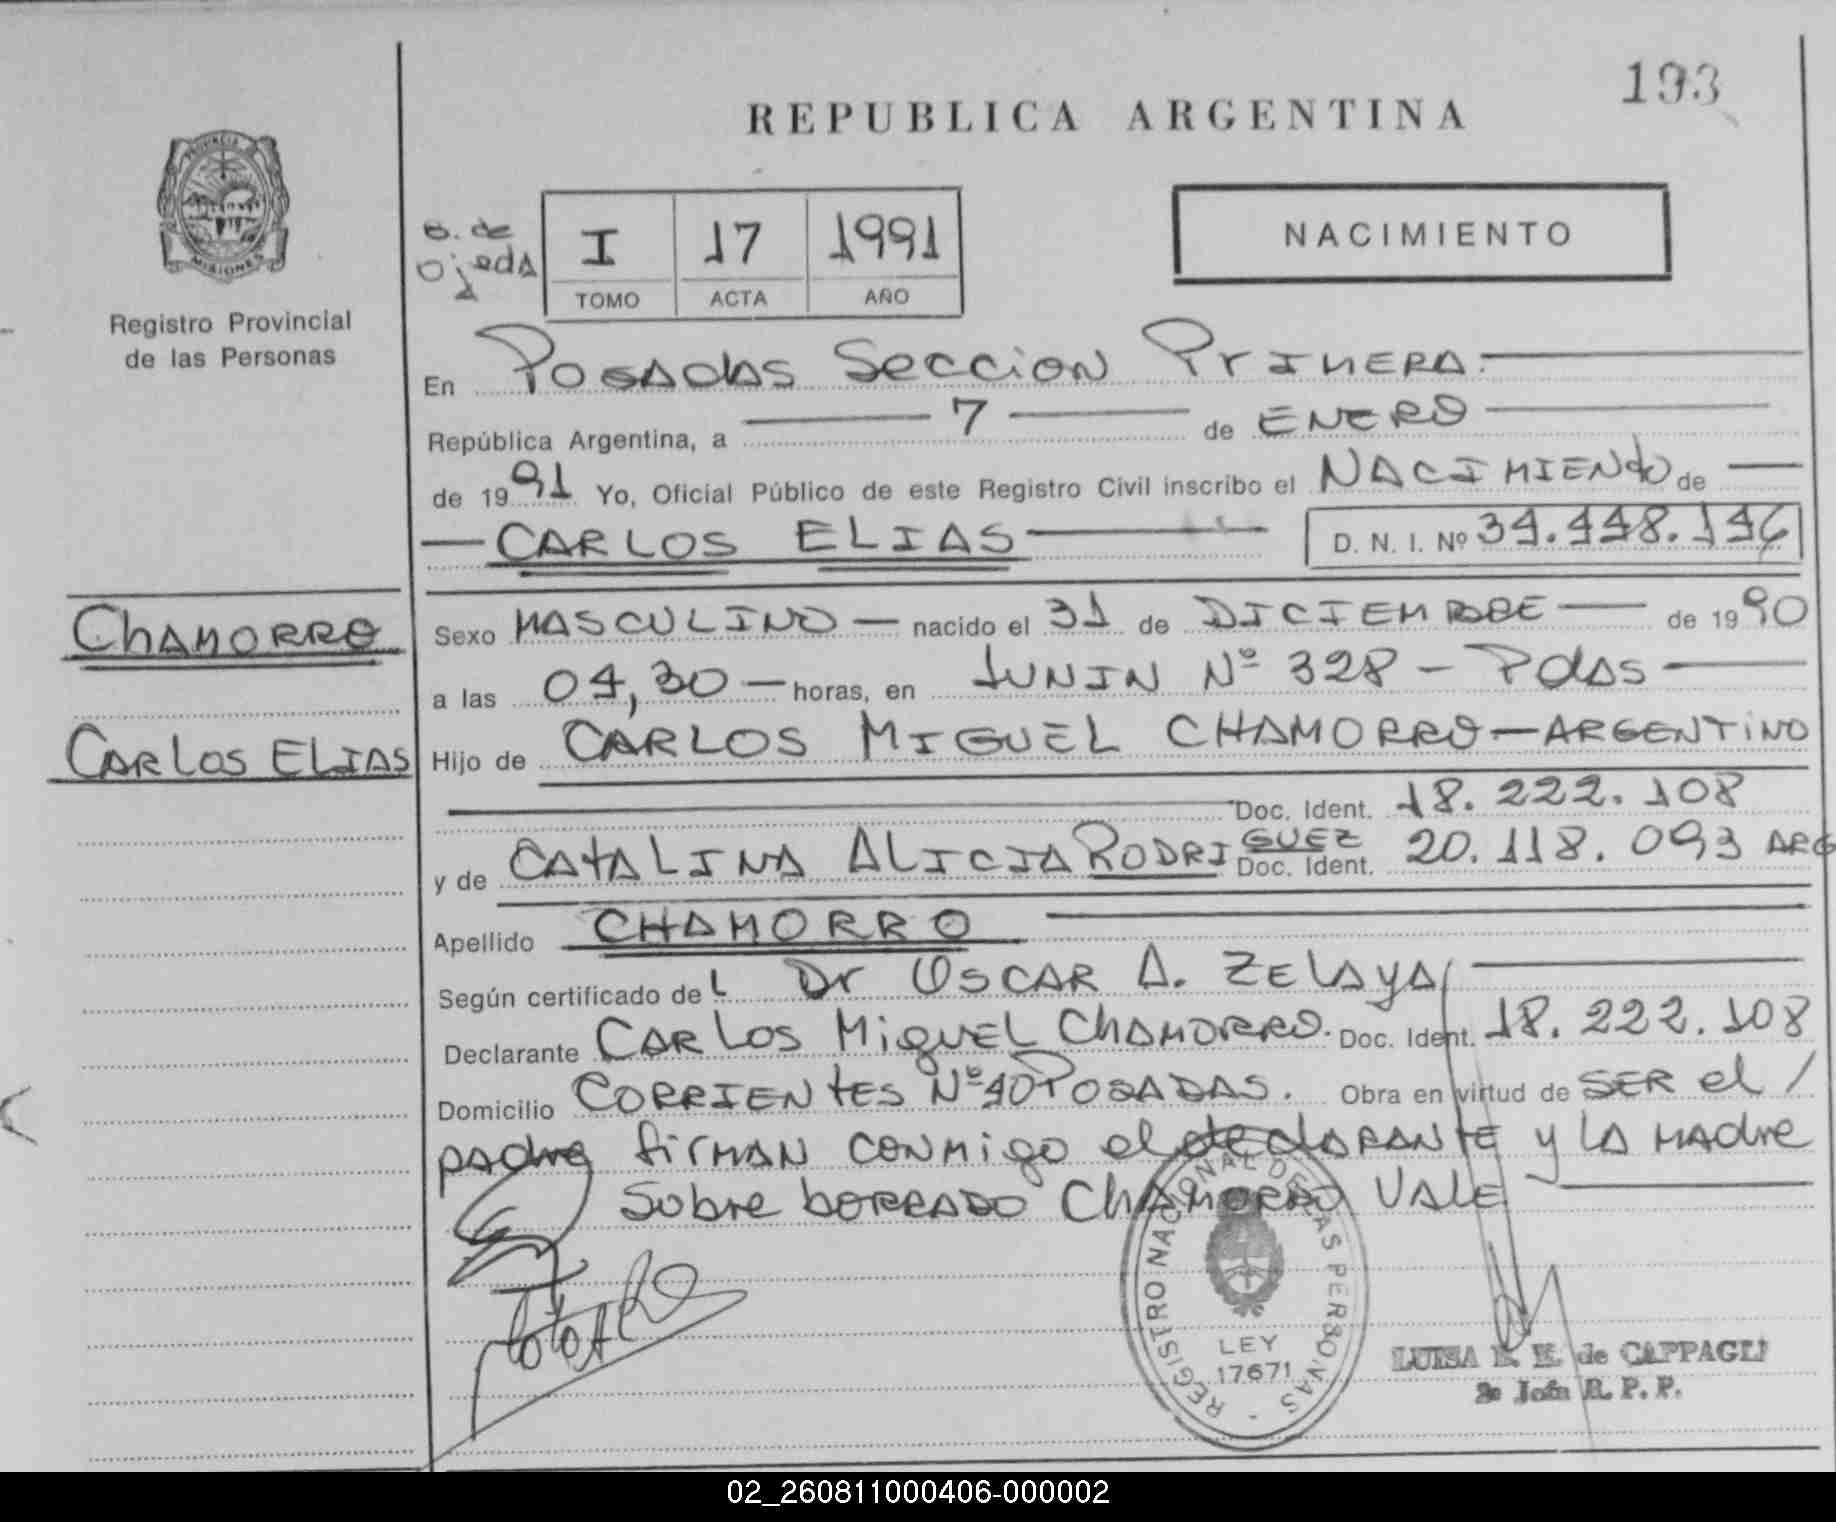 193
REPUBLICA ARGENTINA
PROVINCIA
MISIONES
Registro Provincial
de las Personas
B. de
Ojeda
I 17 1991
TOMO ACTA AÑO
NACIMIENTO
En Posadas Seccion Primera.
República Argentina, a 7 de ENERO
de 1991 Yo, Oficial Público de este Registro Civil inscribo el NACIMIENto de
CARLOS ELIAS D. N. I. Nº
CHAMORRO
Sexo MASCULINO nacido el 31 de DICIEMBRE de 1990
a las 04,30 horas, en JUNIN Nº 328 - Pdas
CARLOS ELIAS
Hijo de CARLOS MIGUEL CHAMORRO - ARGENTINO
Doc. Ident. 18.222.108
y de CATALINA ALICIA RODRIGUEZ Doc. Ident. 20.118.093 ARG
Apellido CHAMORRO
Según certificado del Dr OSCAR A. ZELAYA
Declarante CARLOS MIGUEL CHAMORRO. Doc. Ident. 18.222.108
Domicilio CORRIENTES Nº 40 POSADAS. Obra en virtud de SER el /
padre firman conmigo el declarante y la madre
Sobre borrado Chamorro VALE
REGISTRO NACIONAL DE LAS PERSONAS
LEY
17671
de CAPPAGLI
R. P. P.
02_260811000406-000002